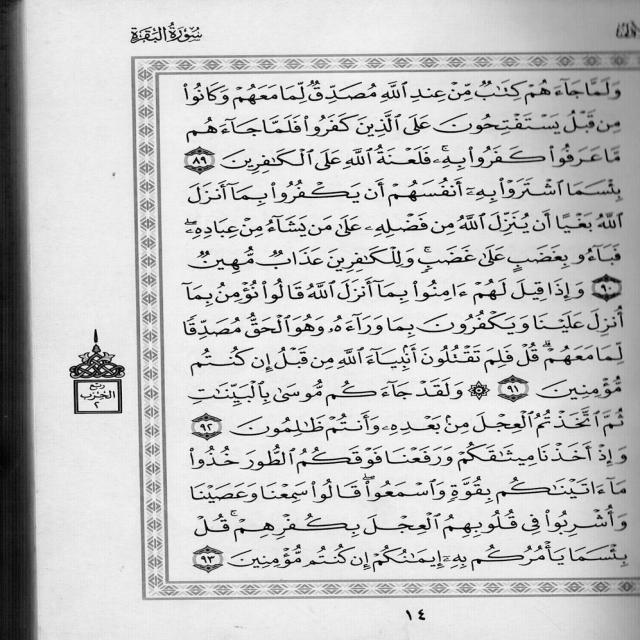 سُورَةُ البَقَرَةِ
وَلَمَّا جَآءَهُمْ كِتَٰبٌ مِّنْ عِندِ اللَّهِ مُصَدِّقٌ لِّمَا مَعَهُمْ وَكَانُوا۟
مِن قَبْلُ يَسْتَفْتِحُونَ عَلَى الَّذِينَ كَفَرُوا۟ فَلَمَّا جَآءَهُم
مَّا عَرَفُوا۟ كَفَرُوا۟ بِهِۦۚ فَلَعْنَةُ اللَّهِ عَلَى الْكَٰفِرِينَ ٨٩
بِئْسَمَا اشْتَرَوْا۟ بِهِۦٓ أَنفُسَهُمْ أَن يَكْفُرُوا۟ بِمَآ أَنزَلَ
اللَّهُ بَغْيًا أَن يُنَزِّلَ اللَّهُ مِن فَضْلِهِۦ عَلَىٰ مَن يَشَآءُ مِنْ عِبَادِهِۦۖ
فَبَآءُو بِغَضَبٍ عَلَىٰ غَضَبٍۚ وَلِلْكَٰفِرِينَ عَذَابٌ مُّهِينٌ
٩٠ وَإِذَا قِيلَ لَهُمْ ءَامِنُوا۟ بِمَآ أَنزَلَ اللَّهُ قَالُوا۟ نُؤْمِنُ بِمَآ
أُنزِلَ عَلَيْنَا وَيَكْفُرُونَ بِمَا وَرَآءَهُۥ وَهُوَ الْحَقُّ مُصَدِّقًا
لِّمَا مَعَهُمْۗ قُلْ فَلِمَ تَقْتُلُونَ أَنۢبِيَآءَ اللَّهِ مِن قَبْلُ إِن كُنتُم
مُّؤْمِنِينَ ٩١ ۞ وَلَقَدْ جَآءَكُم مُّوسَىٰ بِالْبَيِّنَٰتِ
ثُمَّ اتَّخَذْتُمُ الْعِجْلَ مِنۢ بَعْدِهِۦ وَأَنتُمْ ظَٰلِمُونَ ٩٢
وَإِذْ أَخَذْنَا مِيثَٰقَكُمْ وَرَفَعْنَا فَوْقَكُمُ الطُّورَ خُذُوا۟
مَآ ءَاتَيْنَٰكُم بِقُوَّةٍ وَاسْمَعُوا۟ۖ قَالُوا۟ سَمِعْنَا وَعَصَيْنَا
وَأُشْرِبُوا۟ فِى قُلُوبِهِمُ الْعِجْلَ بِكُفْرِهِمْۚ قُلْ
بِئْسَمَا يَأْمُرُكُم بِهِۦٓ إِيمَٰنُكُمْ إِن كُنتُم مُّؤْمِنِينَ ٩٣
ربع
الحزب
٢
١٤